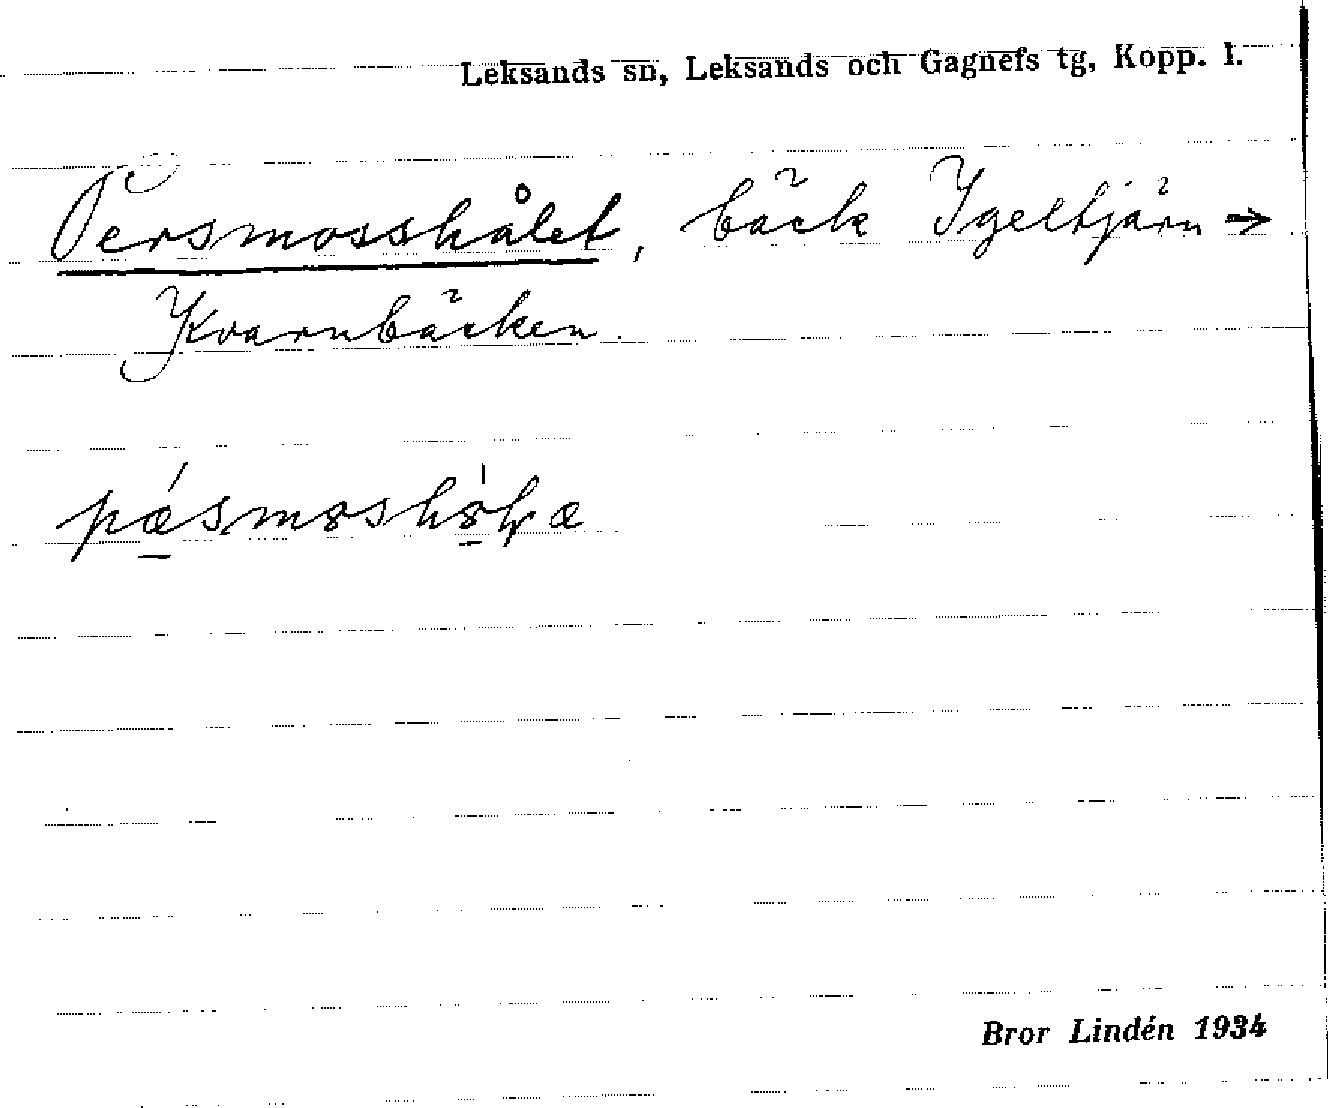 Leksands sn, Leksands och Gagnefs tg, Kopp. l.
Persmosshålet, bäck Igeltjärn →
Kvarnbäcken.
Bror Lindén 1934